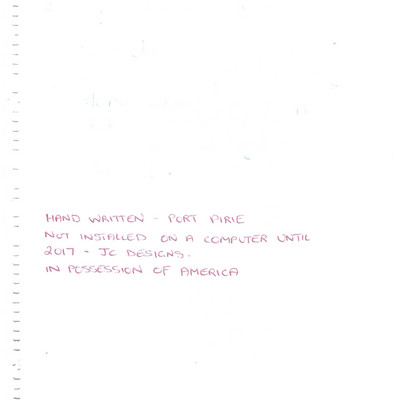 HAND WRITTEN - PORT PIRIE
NOT INSTALLED ON A COMPUTER UNTIL
2017 - JC DESIGNS.
IN POSSESSION OF AMERICA